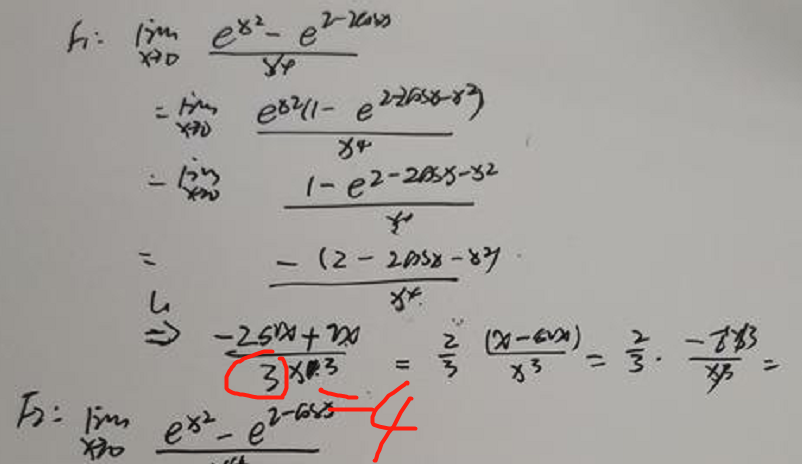 F₁: lim x→0 (e^{x²} - e^{2-2cosx}) / x⁴
= lim x→0 e^{x²}(1 - e^{2-2cosx-x²}) / x⁴
= lim x→0 (1 - e^{2-2cosx-x²}) / x⁴
= -(2 - 2cosx - x²) / x⁴
L ⇒ (-2sinx + 2x) / 3x³ = 2/3 (x - sinx) / x³ = 2/3 ·
= 4
F₂: lim x→0 (e^{x²} - e^{2-cosx}) / x⁴